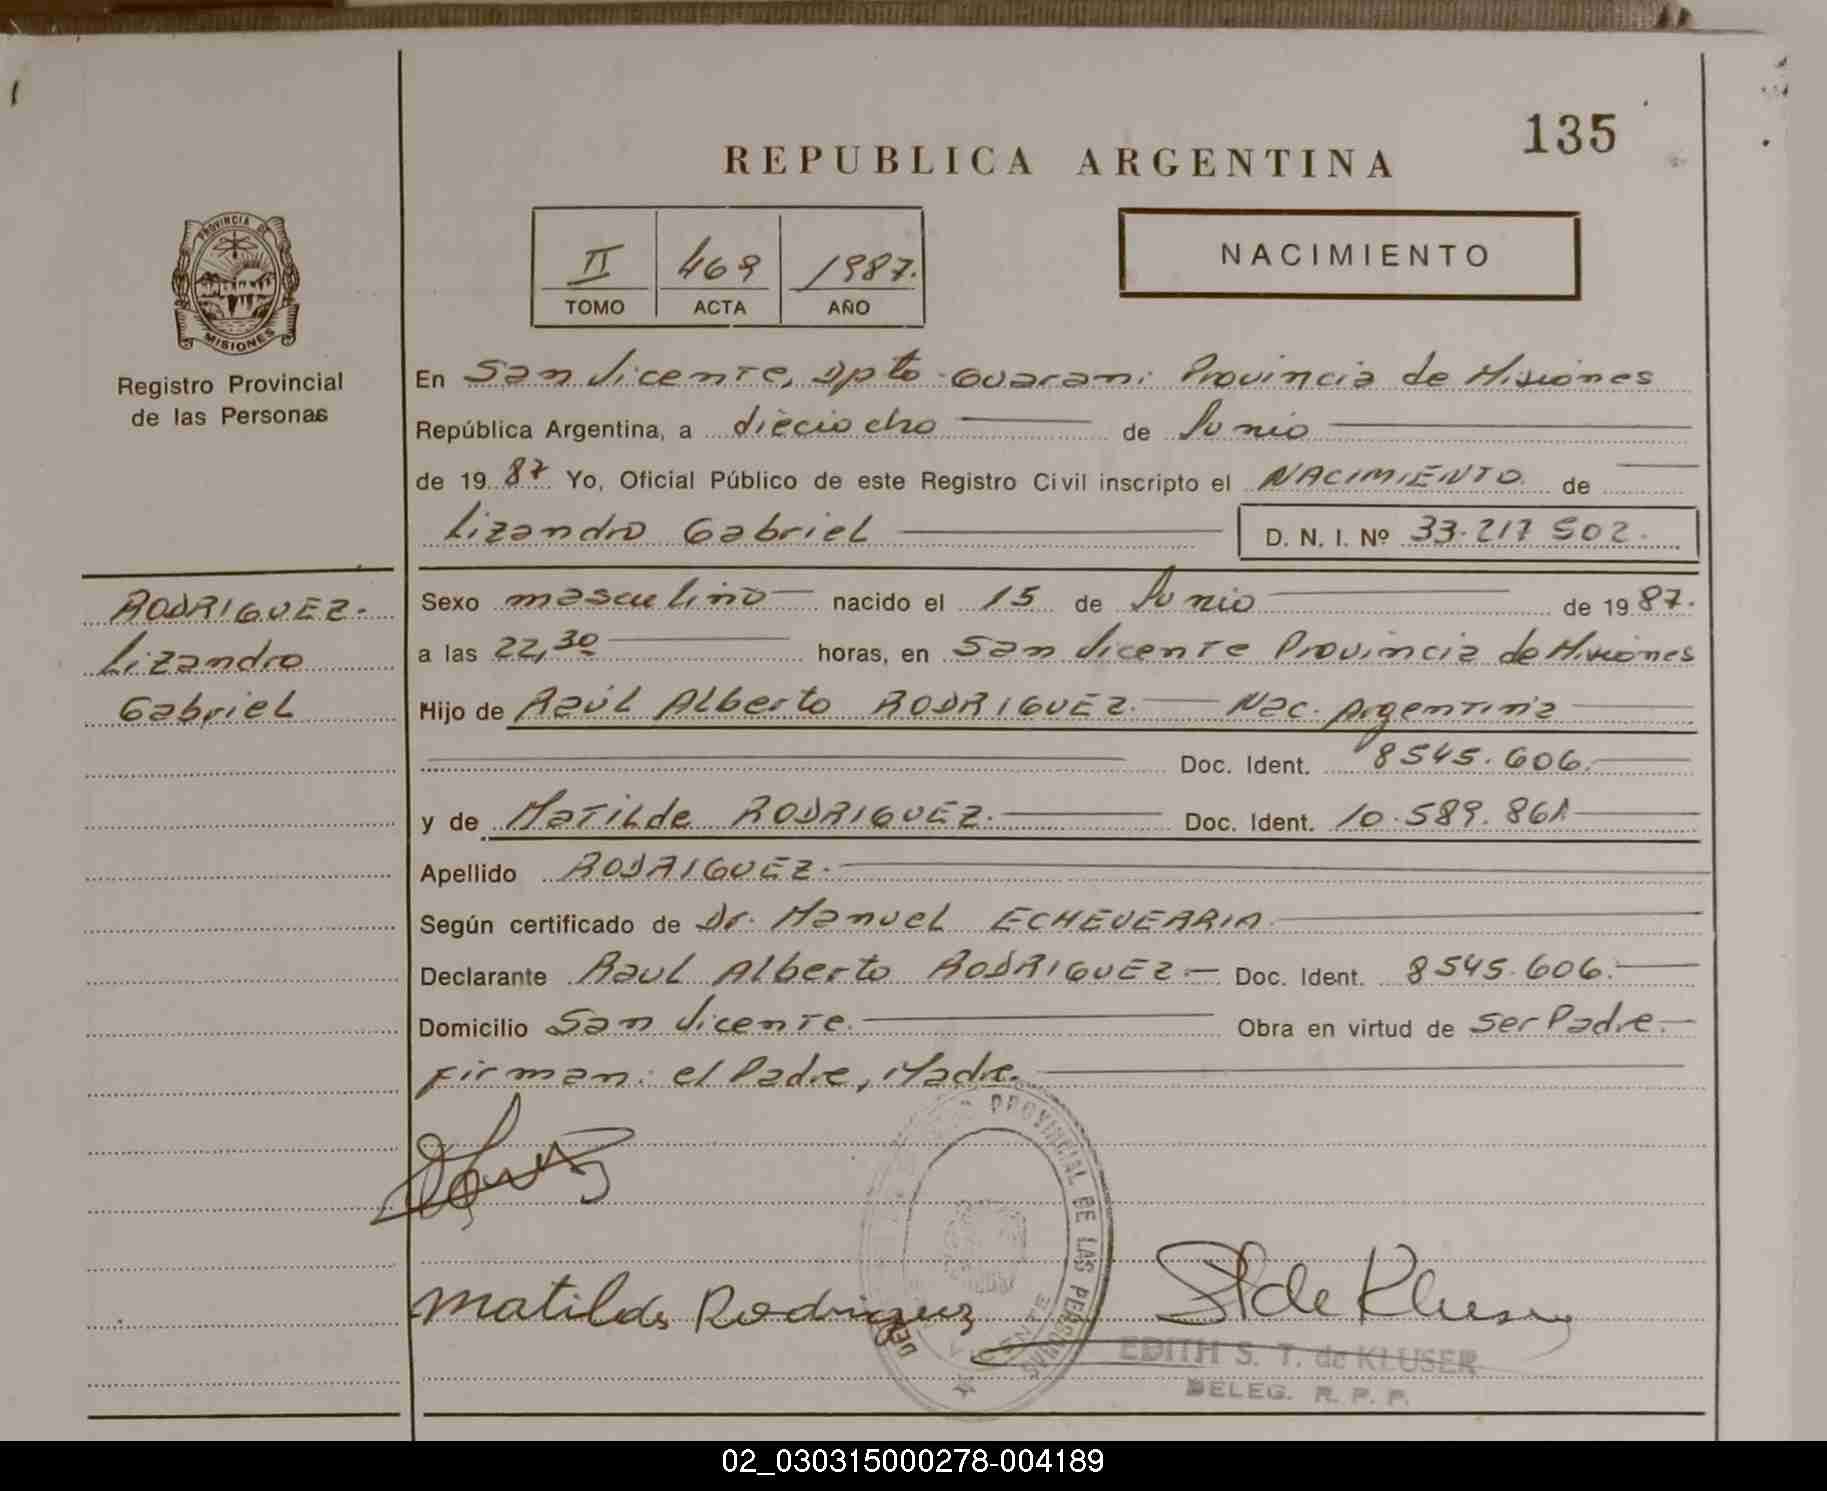 135
REPUBLICA ARGENTINA
II 469 1987.
TOMO ACTA AÑO
NACIMIENTO
PROVINCIA DE
MISIONES
Registro Provincial
de las Personas
En San Vicente, Dpto Guarani Provincia de Misiones
República Argentina, a dieciocho de Junio
de 1987 Yo, Oficial Público de este Registro Civil inscripto el NACIMIENTO de
Lizandro Gabriel D. N. I. Nº 33.217 502.
RODRIGUEZ.
Lizandro
Gabriel
Sexo masculino nacido el 15 de Junio de 1987.
a las 22,30 horas, en San Vicente Provincia de Misiones
Hijo de Raúl Alberto RODRIGUEZ. Nac. Argentina
Doc. Ident. 8545.606.
y de Matilde RODRIGUEZ. Doc. Ident. 10.589.861
Apellido RODRIGUEZ.
Según certificado de Dr. Manuel ECHEVERRIA.
Declarante Raul Alberto RODRIGUEZ. Doc. Ident. 8545.606.
Domicilio San Vicente. Obra en virtud de ser Padre.
Firman: el Padre, Madre.
PROVINCIAL DE LAS PERSONAS
Matilde Rodriguez
ST de Kluser
EDITH S. T. de KLUSER
DELEG. R. P. P.
02_030315000278-004189